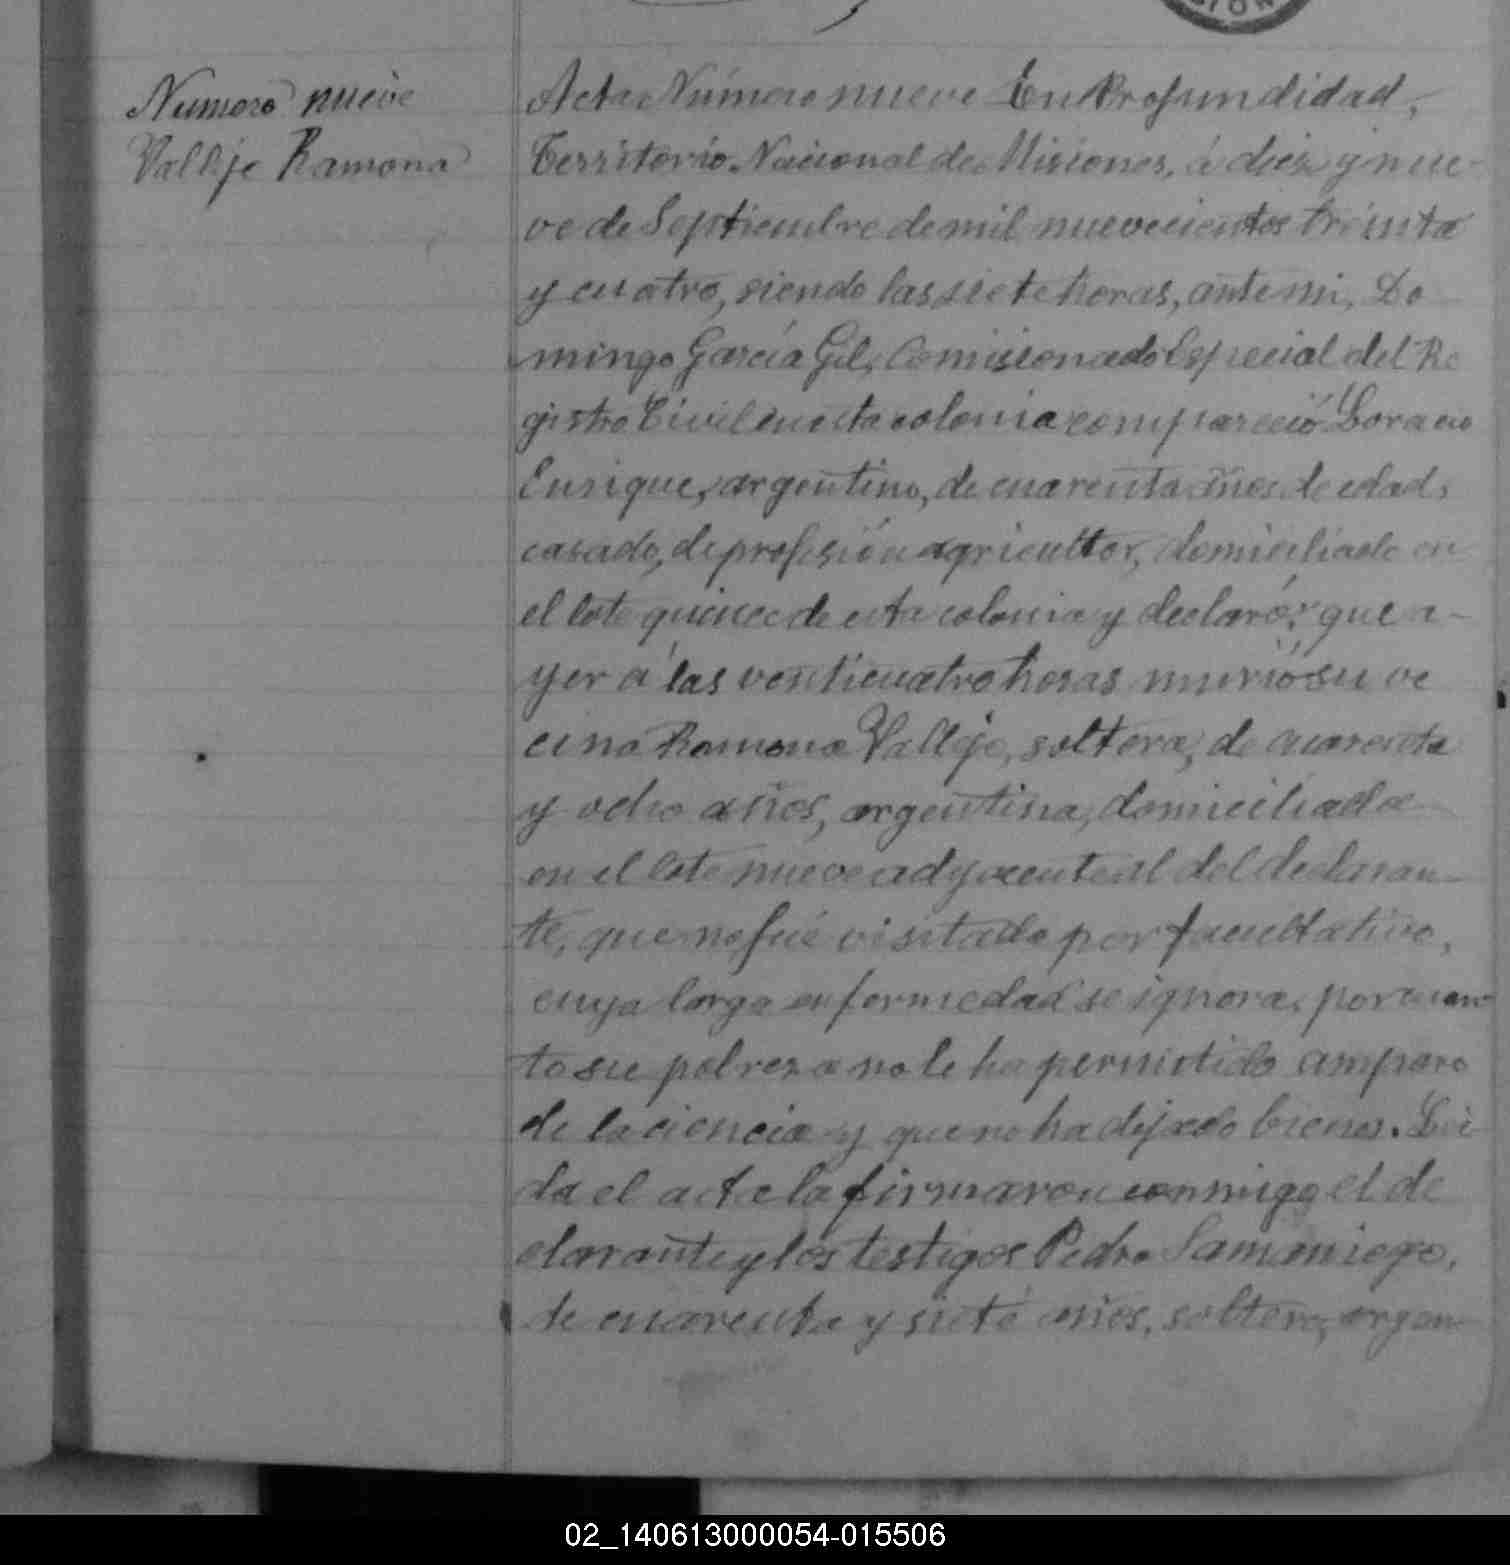 SION
Numero nueve
Vallejo Ramona
Acta Número nueve En Profundidad,
Territorio Nacional de Misiones, á diez y nue-
ve de Septiembre de mil nuevecientos treinta
y cuatro, siendo las siete horas, ante mi, Do
mingo García Gil, Comisionado Especial del Re
gistro Civil en esta colonia compareció
Enrique, argentino, de cuarenta años de edad,
casado, de profesión agricultor, domiciliado en
el lote quince de esta colonia y declaró: que a-
yer á las venticuatro horas murió su ve
cina Ramona Vallejo, soltera, de cuarenta
y ocho años, argentina, domiciliada
en el lote nueve adyacente al del declaran-
te, que no fué visitado por facultativo,
cuya larga enfermedad se ignora, por cuan-
to su pobreza no le ha permitido amparo
de la ciencia y que no ha dejado bienes. Leí
da el acta la firmaron conmigo el de
clarante y los testigos Pedro Samaniego,
de cuarenta y siete años, soltero, argen-
02_140613000054-015506